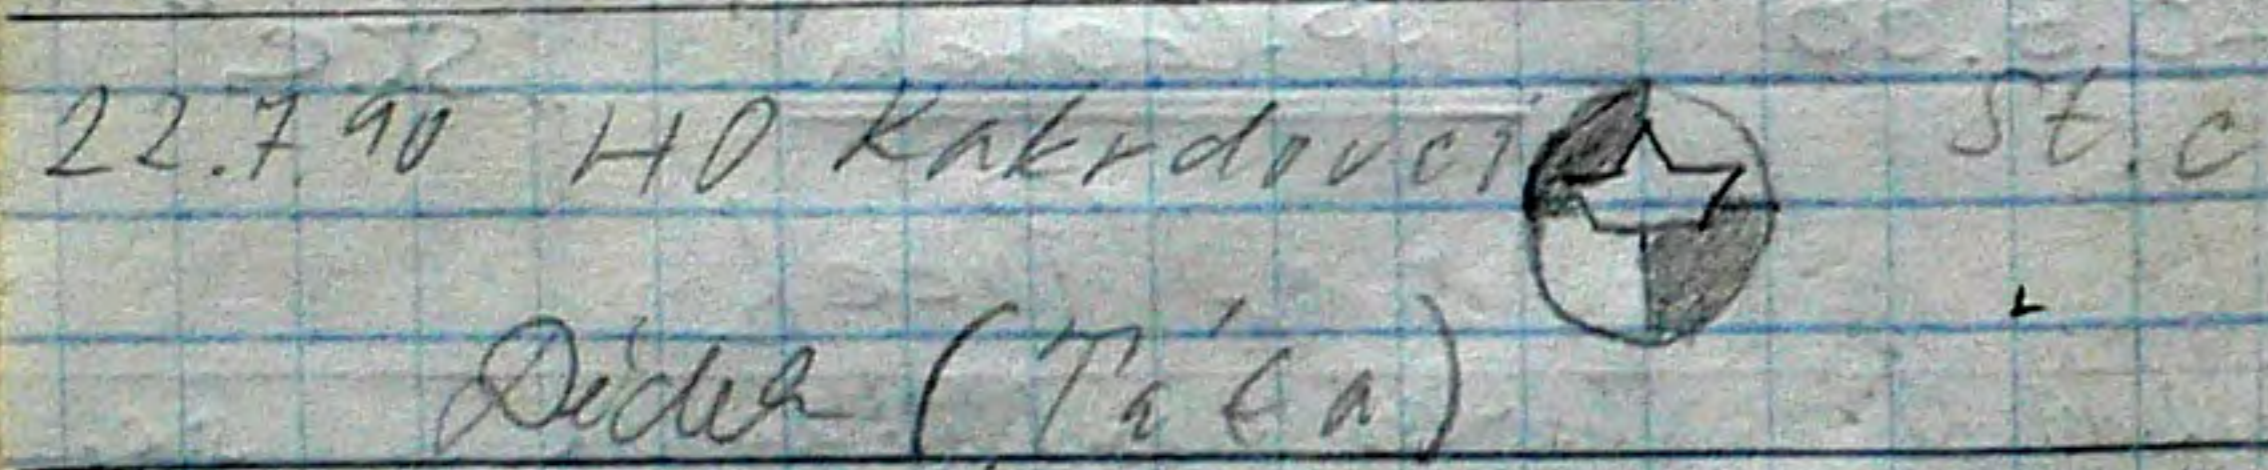 22.7.90 HO Kakrdovci St. C
Dědek (Táta)